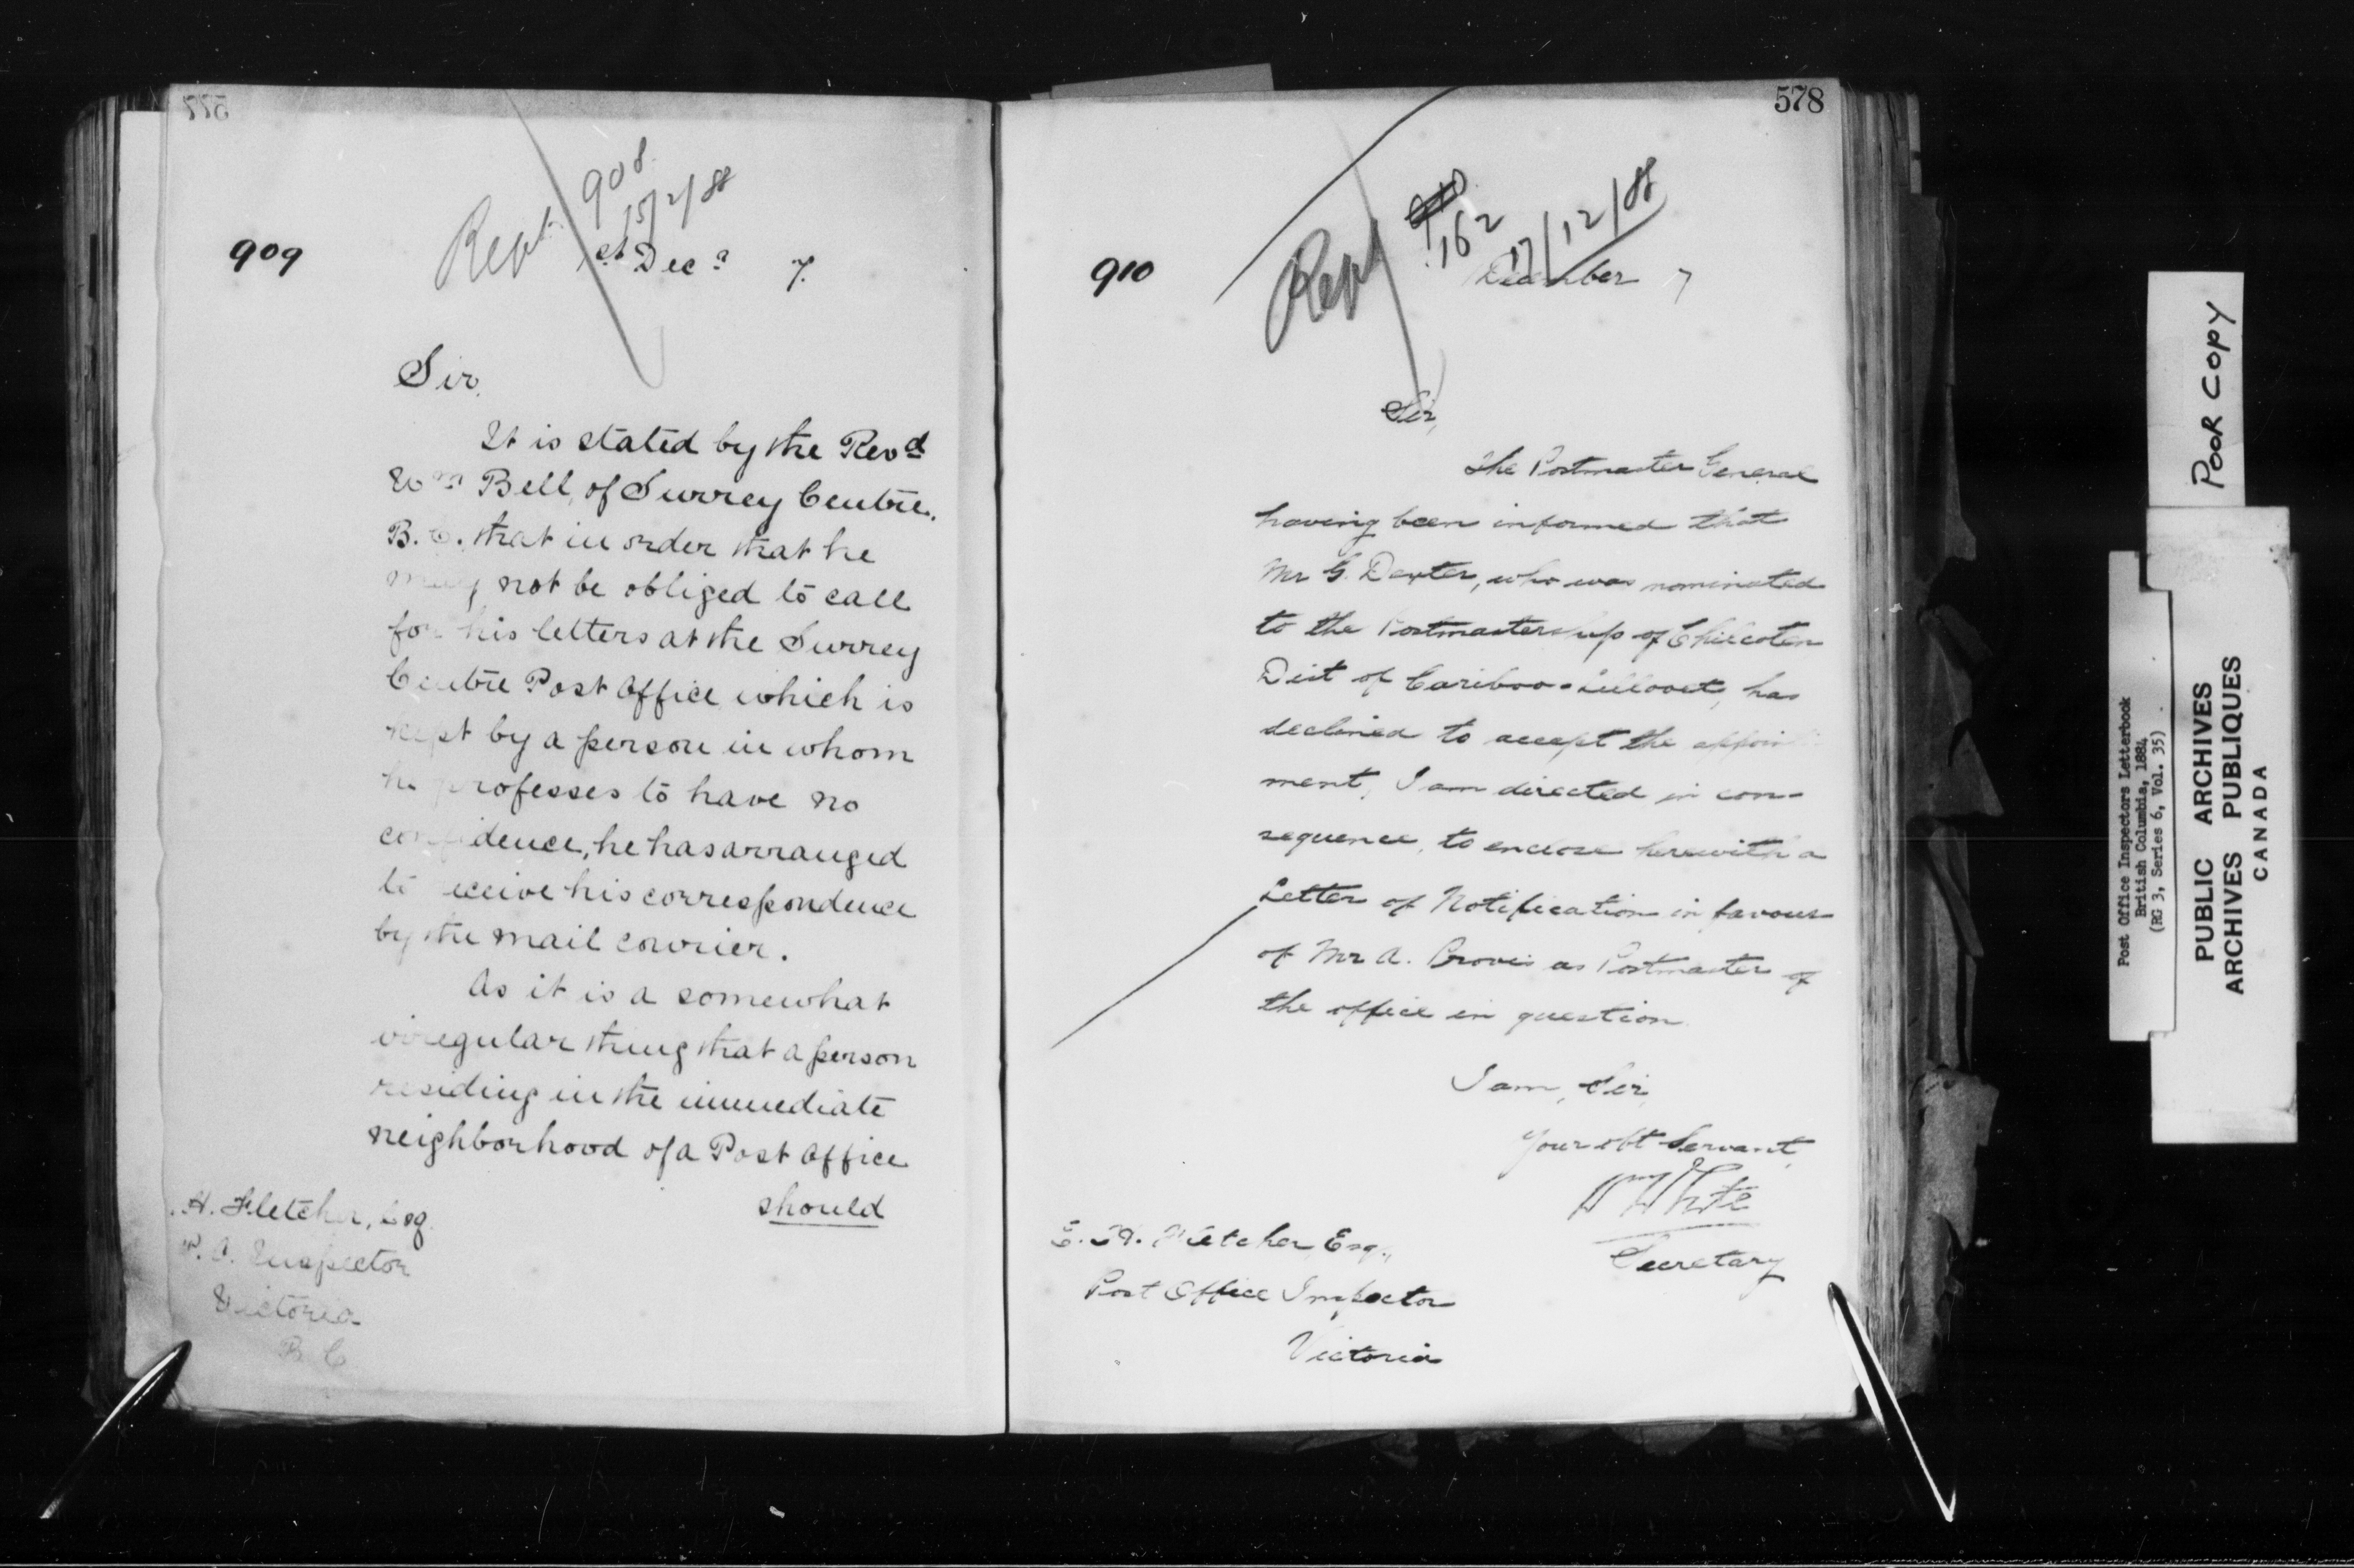 909
Rept 908
15/2/88
1st Decr 7.
Sir,
It is stated by the Revd
Wm Bell, of Surrey Centre,
B.C. that in order that he
may not be obliged to call
for his letters at the Surrey
Centre Post Office which is
kept by a person in whom
he professes to have no
confidence, he has arranged
to receive his correspondence
by the mail courier.
As it is a somewhat
irregular thing that a person
residing in the immediate
neighborhood of a Post Office
should
H. Fletcher, Esq
P. O. Inspector
Victoria
B C
578
910
Rept 910
162
17/12/88
December 7
Sir,
The Postmaster General
having been informed that
Mr G. Dexter, who was nominated
to the Postmastership of Chilcoten
Dist of Cariboo-Lillooet, has
declined to accept the appoint
ment, I am directed in con-
sequence, to enclose herewith a
Letter of Notification in favour
of Mr A. as Postmaster of
the office in question.
I am, Sir,
Your obt Servant,
Wm White
Secretary
E. H. Fletcher Esq.,
Post Office Inspector
Victoria
POOR COPY
Post Office Inspectors Letterbook
British Columbia, 1884
(RG 3, Series 6, Vol. 35)
PUBLIC ARCHIVES
ARCHIVES PUBLIQUES
CANADA